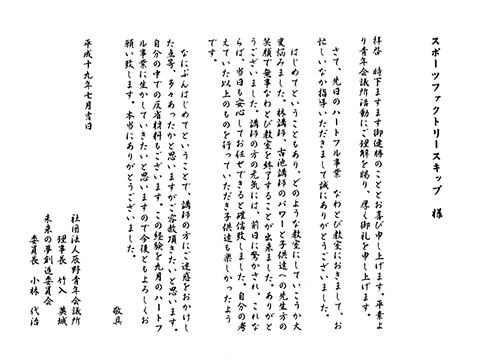 スポーツファクトリースキップ 様
拝啓 時下ますます御健勝のこととお喜び申し上げます。平素よ
り青年会議所活動にご理解を賜り、厚く御礼を申し上げます。
さて、先日のハートフル事業 なわとび教室におきまして、お
忙しいなか指導いただきまして誠にありがとうございました。
はじめてということもあり、どのような教室にしていこうか大
変悩みました。林講師、古池講師のパワーと子供達への先生方の
笑顔で無事なわとび教室を終了することが出来ました。ありがと
うございました。講師の方の元気には、前日に驚かされ、これな
らば、当日も安心してお任せできると確信致しました。自分の考
えていた以上のものを行っていただき子供達も楽しかったよう
です。
なにぶんはじめてということで、講師の方にご迷惑をおかけし
た点等、多々あったかと思いますがご容赦頂きたいと思います。
自分の中での反省材料もございます。この経験を九月のハートフ
ル事業に生かしていきたいと思いますので今後ともよろしくお
願い致します。本当にありがとうございました。
敬具
平成十九年七月吉日
社団法人辰野青年会議所
理事長 竹入 英城
未来の夢創造委員会
委員長 小林 代治